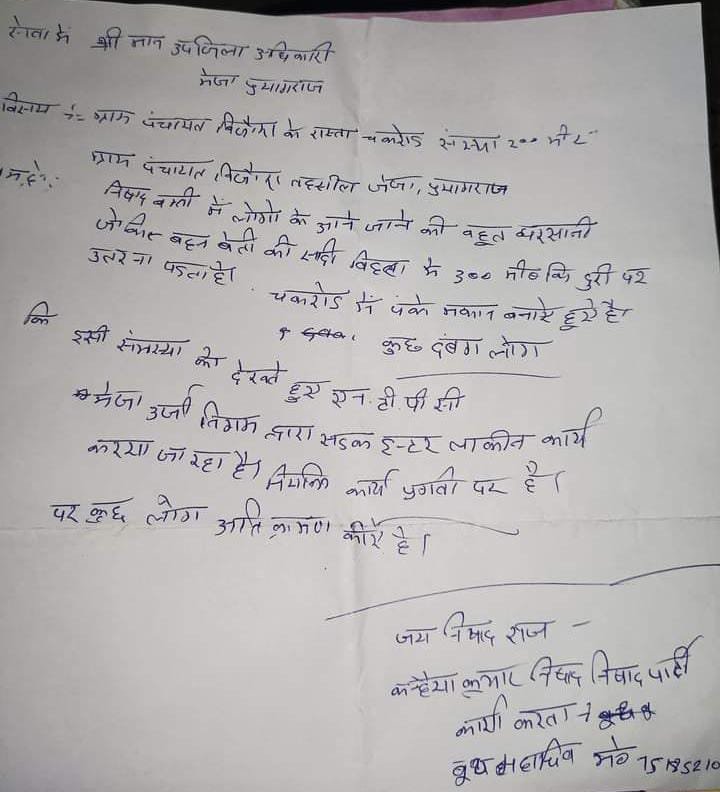 सेवा में श्री मान उपजिला अधिकारी
मेजा प्रयागराज
विसय :- ग्राम पंचायत बिजौरा के रास्ता चकरोड संख्या २०० मी०
ग्राम पंचायत बिजौरा तहसील मेजा, प्रयागराज
निषाद बस्ती में लोगो के आने जाने की बहुत परसानी
जोकि बहन बेटी की सादी विहहा में ३०० मी० कि दुरी पर
उतरना पडता है।
चकरोड में पंके मकान बनाऐ हूऐ है।
कुछ दबंग लोग
कि इसी संमस्या को देखते हुए एन.टी.पी सी
मेजा उर्जा निगम द्वारा सडक इन्टर लाकीन कार्य
करया जा रहा है। कार्य प्रगती पर है।
पर कुछ लोग अति क्रमण कीऐ है।
जय निषाद राज -
कन्हैया कुमार निषाद निषाद पार्टी
कार्या करता
बूथ मो०